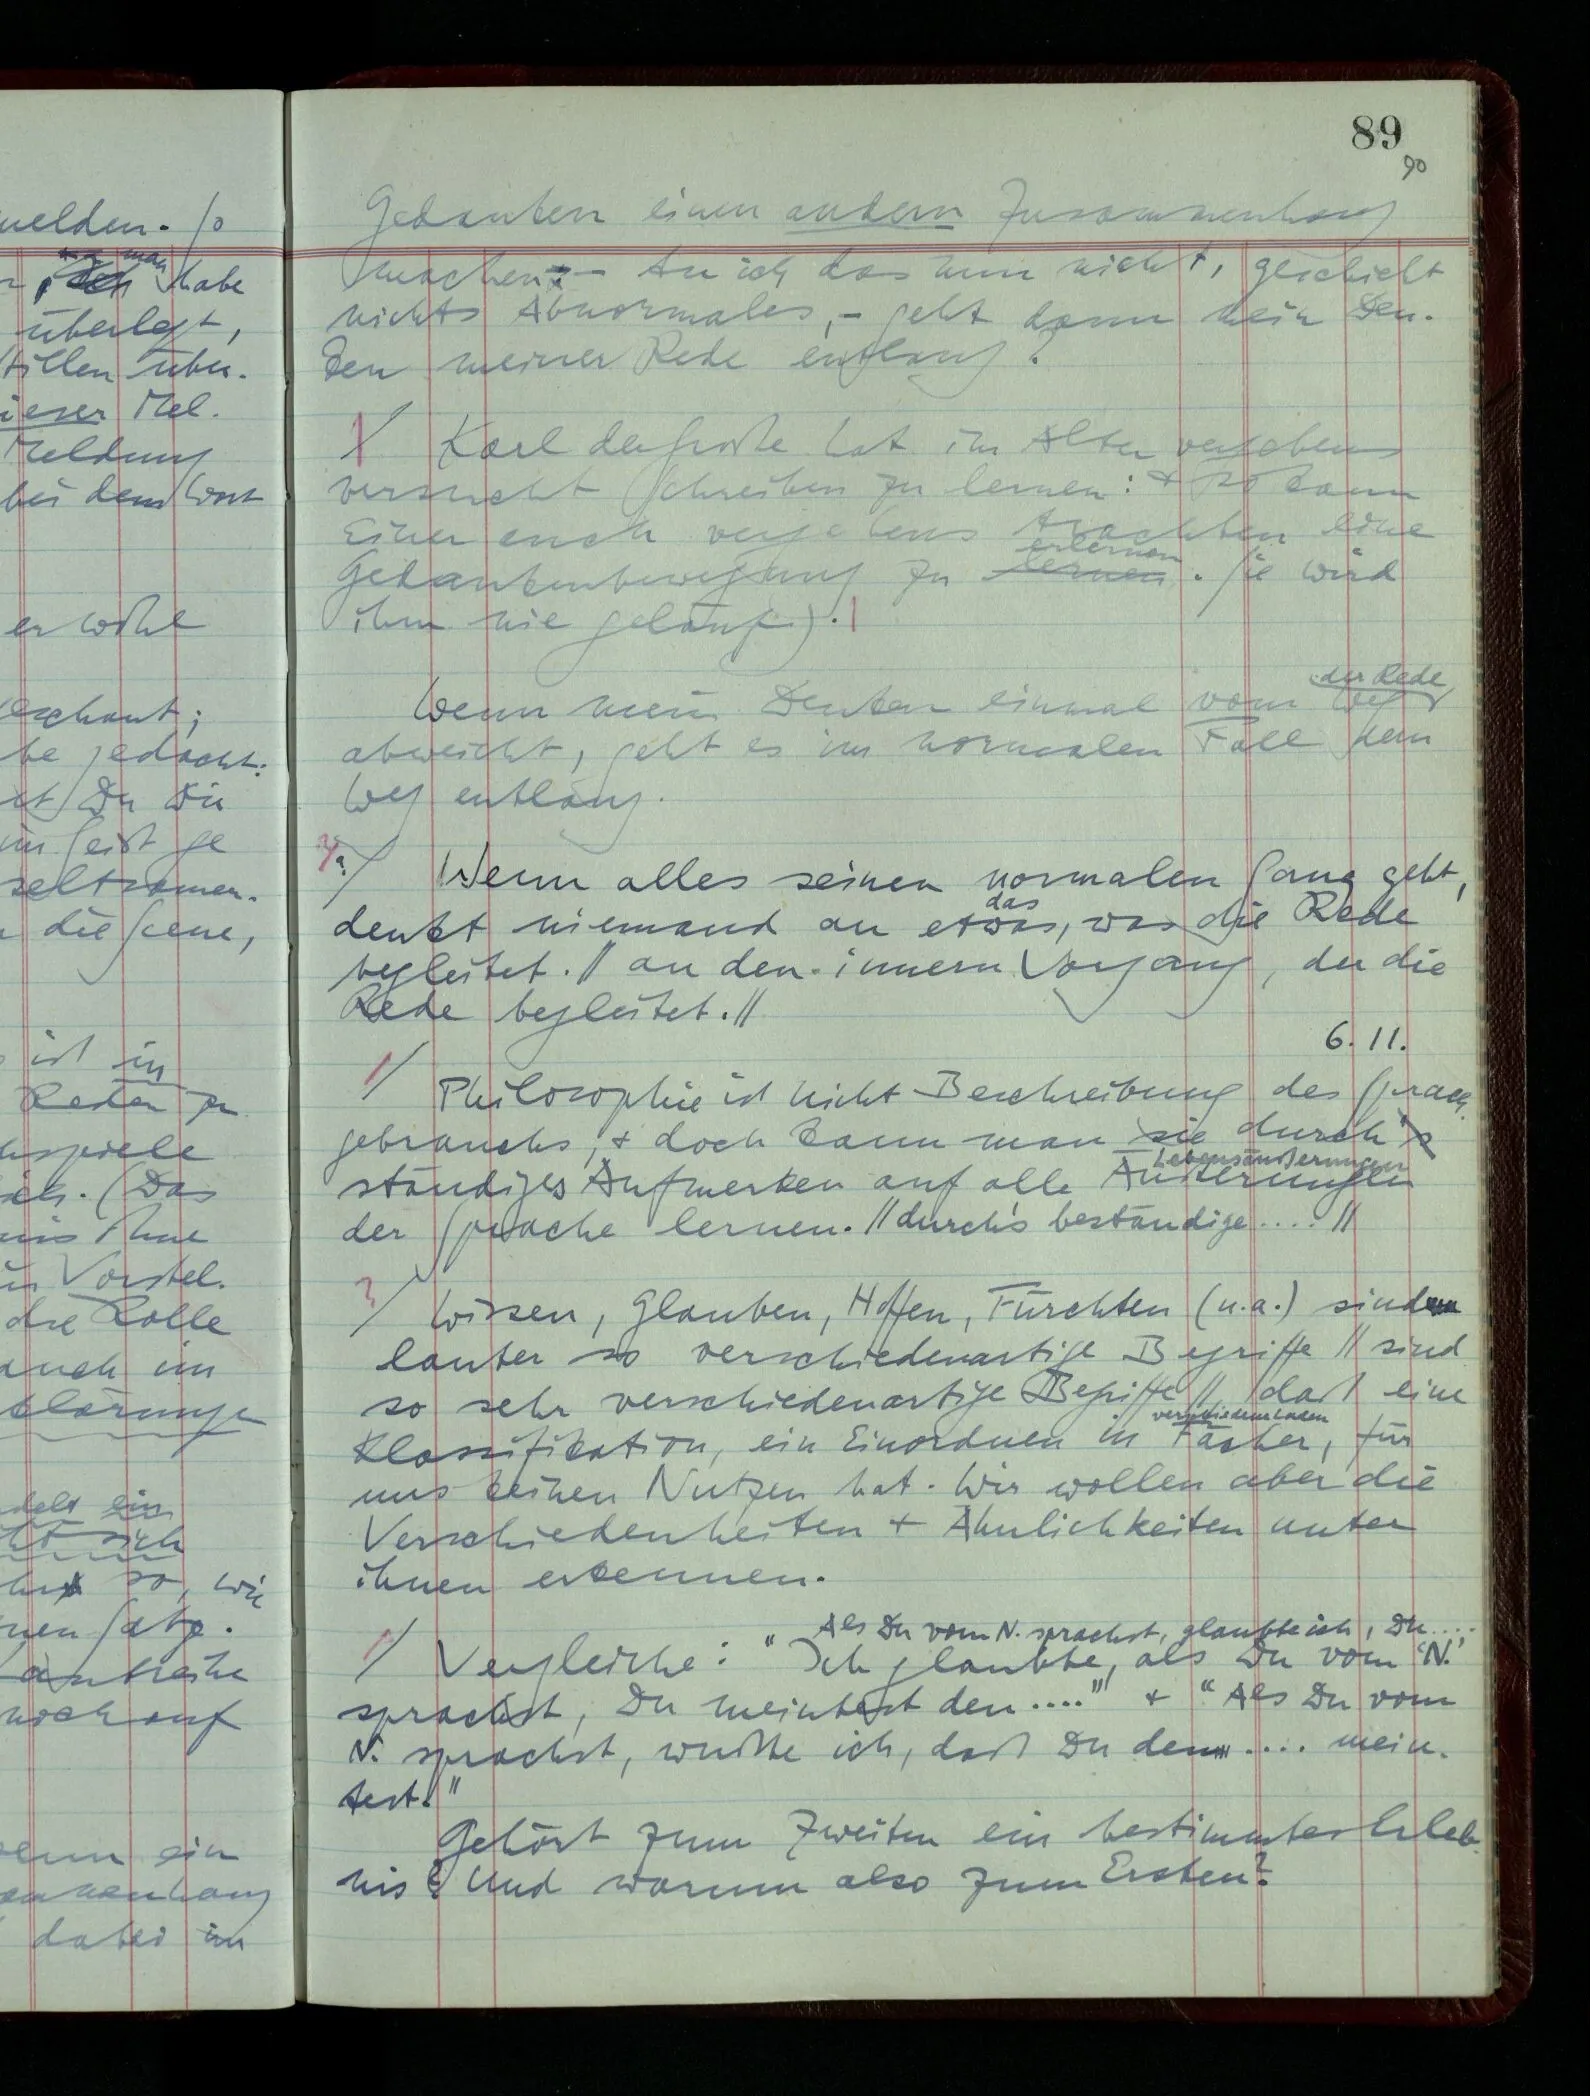 melden. So
man
habe
überlegt,
stillen über-
ieser Mel-
Meldung
bei dem Wort
er wohl
geschaut;
be gedacht:
Du Dir
im Geist ge
seltsamer.
die Scene,
ist in
Reden zu
hspiele
ich. (Das
ins Thue
in Vorstel-
die Rolle
auch im
klärunge
delt ein
sich
so, wie
nen Satz.
Lautreihe
noch auf
wenn ein
sammenhang
dabei im
89
90
Gedanken einen andern Zusammenhang
machen? – Tu ich das nun nicht, geschieht
nichts Abnormales, – geht dann mein Den-
ken meiner Rede entlang?
1/ Karl der Große hat im Alter vergebens
versucht schreiben zu lernen: & so kann
Einer auch vergebens trachten eine
erlernen
Gedankenbewegung zu lernen. Sie wird
ihm nie geläufig.
der Rede
Wenn mein Denken einmal vom Weg
abweicht, geht es im normalen Fall dem
Weg entlang.
?/ Wenn alles seinen normalen Gang geht,
das
denkt niemand an etwas, was die Rede
begleitet. // an den innern Vorgang, der die
Rede begleitet. //
6. 11.
1/ Philosophie ist nicht Beschreibung des Sprach-
gebrauchs, & doch kann man sie durch's
Lebensäußerungen
ständiges Aufmerken auf alle Äußerungen
der Sprache lernen. // durch's beständige .... //
3/ Wissen, Glauben, Hoffen, Fürchten (u.a.) sind
lauter so verschiedenartige Begriffe // sind
so sehr verschiedenartige Begriffe //, daß eine
verschiedene Laden
Klassifikation, ein Einordnen in Fächer, für
uns keinen Nutzen hat. Wir wollen aber die
Verschiedenheiten & Ähnlichkeiten unter
ihnen erkennen.
Als Du vom N. sprachst, glaubte ich, Du ....
1/ Vergleiche: "Ich glaubte, als Du vom 'N.'
sprachst, Du meintest den ...." & "Als Du vom
N. sprachst, wußte ich, daß Du den .... mein-
test."
Gehört zum Zweiten ein bestimmtes Erleb-
nis? Und warum also zum Ersten?